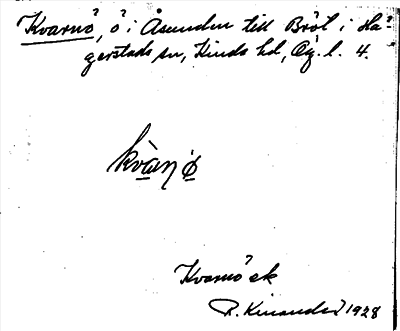 Kvarnö, ö i Åsunden till Bröt i Hä-
gerstads sn, Kinds hd, Ög. l. 4.
kvàṇø
Kvarnö ek
R. Kinander 1928